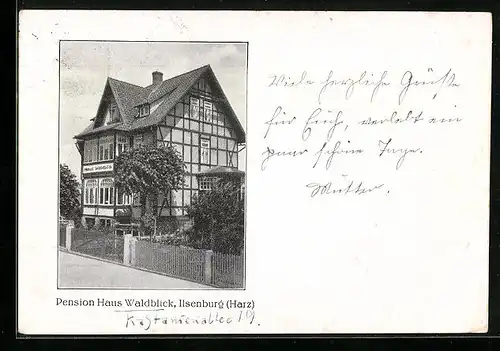 Viele herzliche Grüße
für Euch, verlebt ein
paar schöne Tage.
Mutter.
Pension Haus Waldblick, Ilsenburg (Harz)
Kastanienallee 19